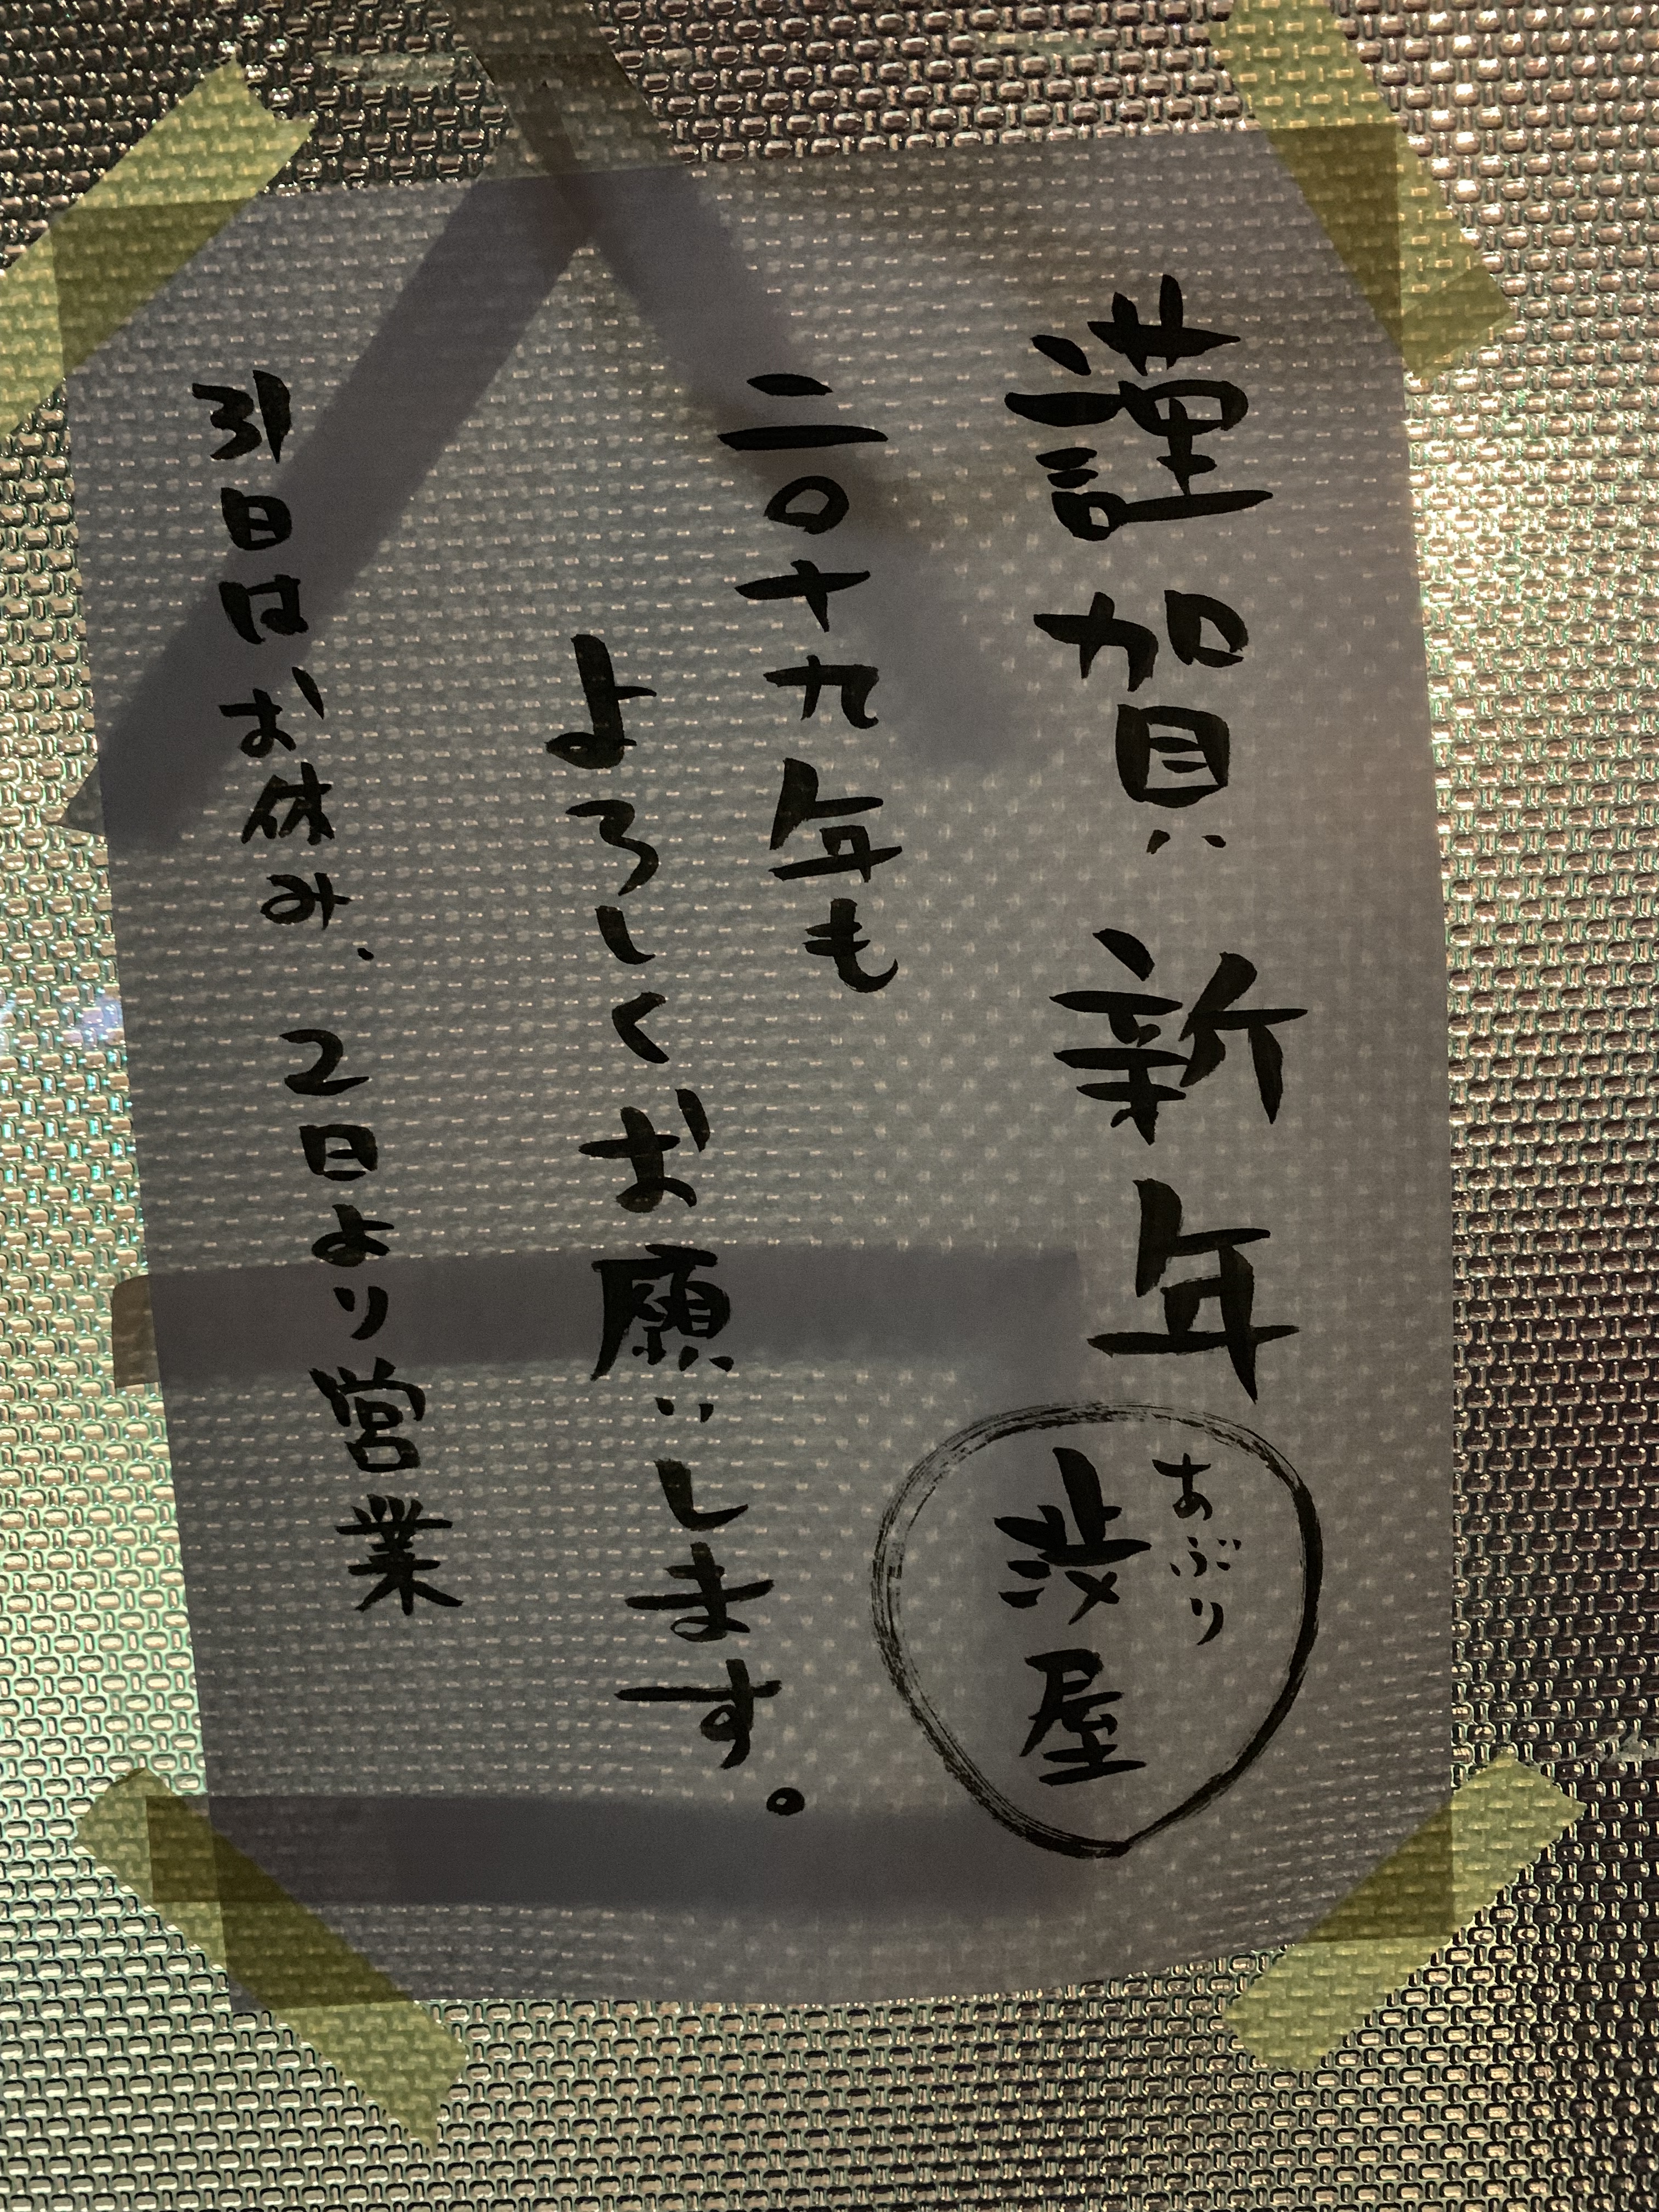 謹賀新年
あぶり
渋屋
二〇十九年も
よろしくお願いします。
31日はお休み、2日より営業